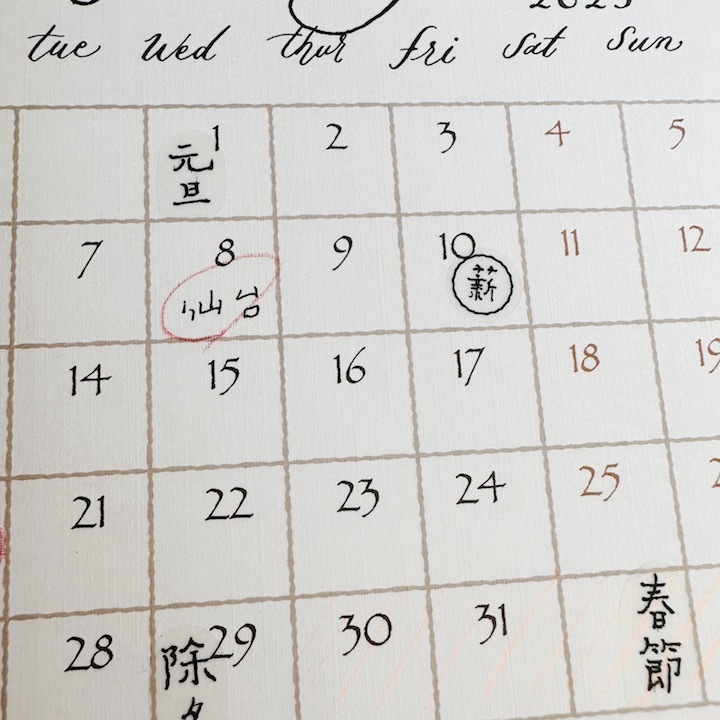 2025
tue Wed thur fri Sat Sun
1 2 3 4 5
元
旦
7 8 9 10 11 12
仙台 薪
14 15 16 17 18 19
21 22 23 24 25
28 29 30 31
除
夕
春
節